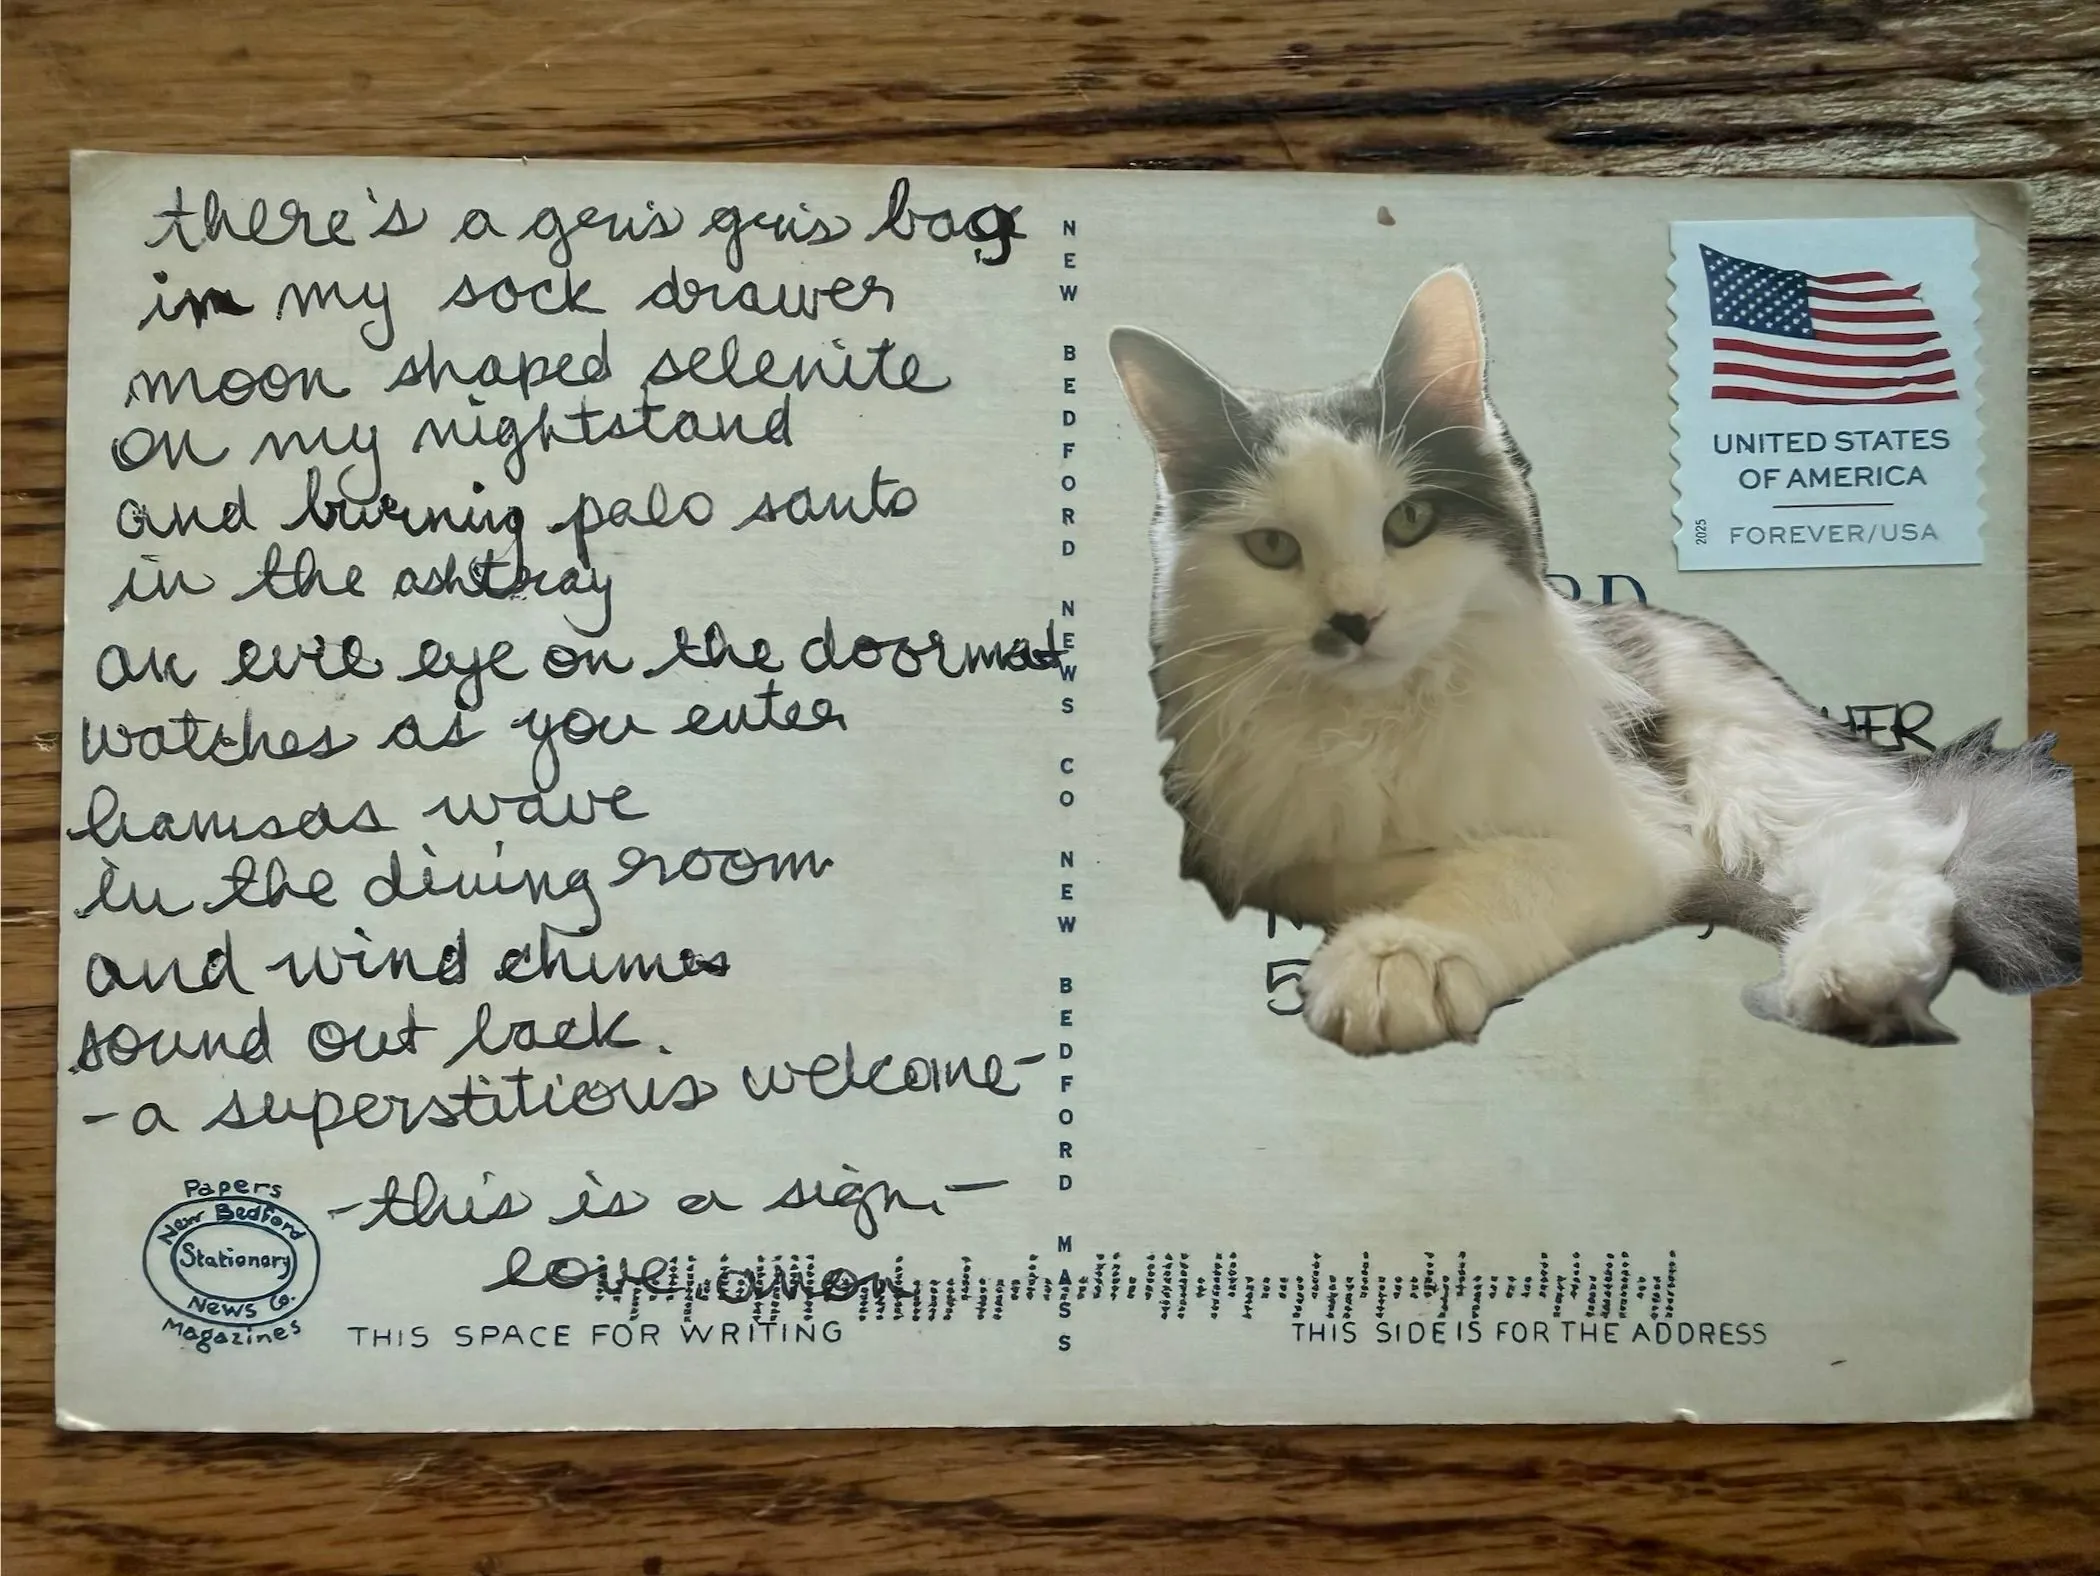 there's a gris gris bag
in my sock drawer
moon shaped selenite
on my nightstand
and burning palo santo
in the ashtray
an evil eye on the doormat
watches as you enter
hamsas wave
in the dining room
and wind chimes
sound out back.
- a superstitious welcome -
- this is a sign. -
love,
Papers
New Bedford
Stationary
News Co.
Magazines
THIS SPACE FOR WRITING
NEW BEDFORD NEWS CO NEW BEDFORD MASS
UNITED STATES
OF AMERICA
FOREVER/USA
2025
THIS SIDE IS FOR THE ADDRESS